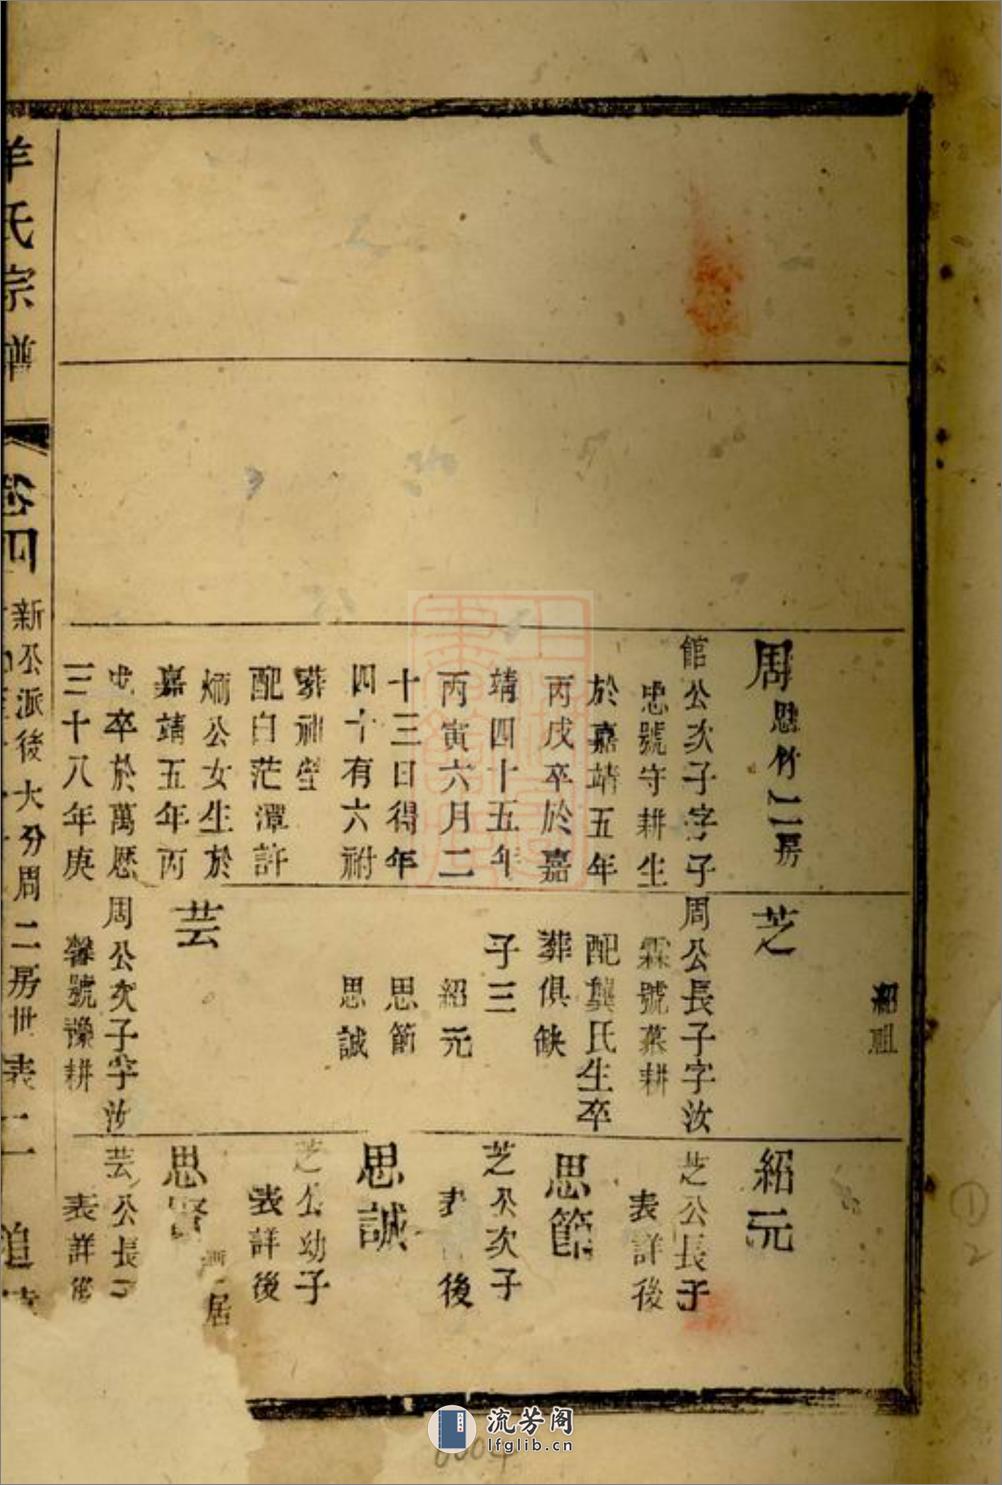 紹祖
周
思竹二房
館公次子字子
忠號守耕生
於嘉靖五年
丙戌卒於嘉
靖四十五年
丙寅六月二
十三日得年
四十有六祔
葬祖塋
配白茫潭許
炳公女生於
嘉靖五年丙
戌卒於萬歷
三十八年庚
芝
周公長子字汝
霖號菜耕
配龔氏生卒
葬俱缺
子三
紹元
思節
思誠
芸
周公次子字汝
馨號豫耕
紹元
芝公長子
表詳後
思節
芝公次子
表 後
思誠
芝公幼子
表詳後
思
居
芸公長
表詳後
羊氏宗譜
卷四
新公派後大分周二房世表二
追
流芳阁
lfglib.cn